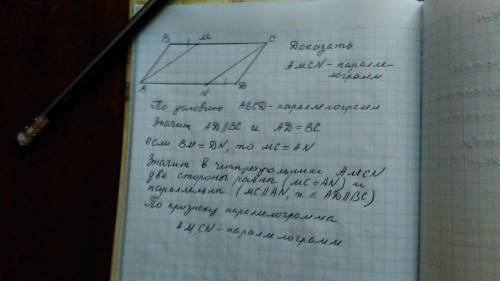 B M C
Доказать
AMCN - паралле-
лограмм
A N D
По условию ABCD - параллелограмм
Значит AD || BC и AD = BC
если BM = DN, то MC = AN
Значит в четырехугольнике AMCN
две стороны равны (MC = AN) и
параллельны (MC || AN, т.к. AD || BC)
По признаку параллелограмма
AMCN - параллелограмм